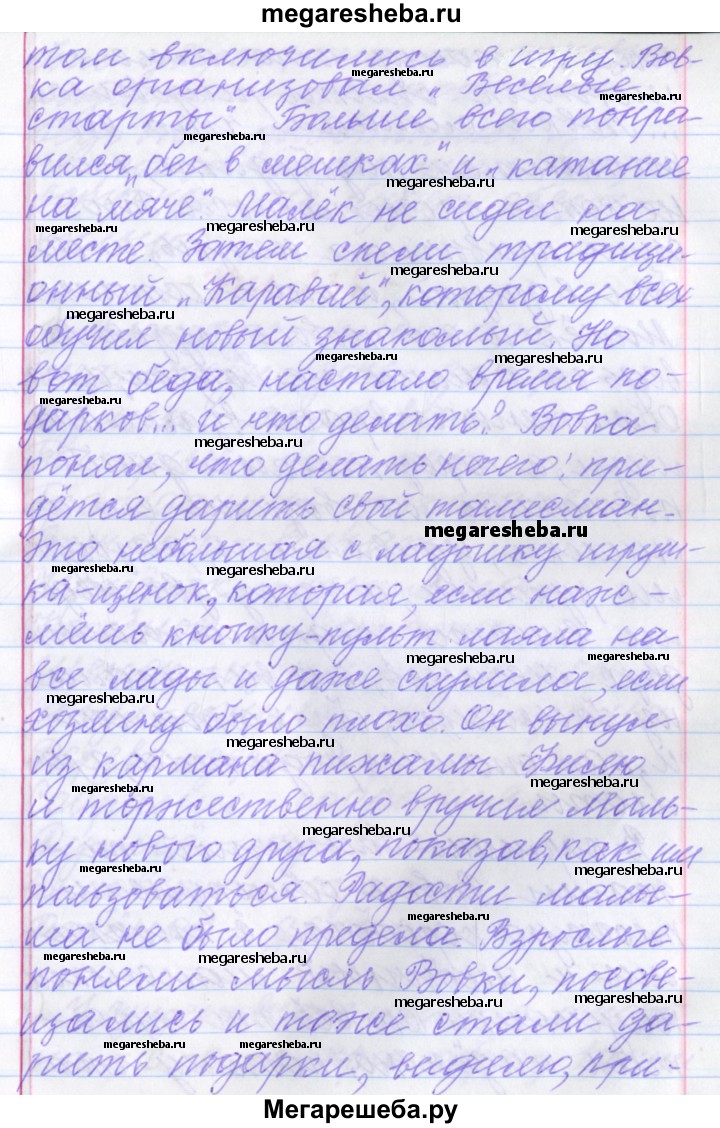 megaresheba.ru
том включились в игру. Вов-
ка организовал „Веселые
старты". Больше всего понра-
вился „бег в мешках" и „катание
на мяче". Малёк не сидел на
месте. Затем спели традици-
онный „Каравай", которому всех
обучил новый знакомый. Но
вот беда, настало время по-
дарков... и что делать? Вовка
понял, что делать нечего: при-
дётся дарить свой талисман.
Это небольшая с ладошку игруш-
ка-щенок, которая, если наж-
мёшь кнопку-пульт лаяла на
все лады и даже скулила, если
хозяину было плохо. Он вынул
из кармана пижамы
и торжественно вручил Маль-
ку нового друга, показав как им
пользоваться. Радости малы-
ша не было предела. Взрослые
поняли мысль Вовки, посове-
щались и тоже стали да-
рить подарки, видимо, при-
Мегарешеба.ру